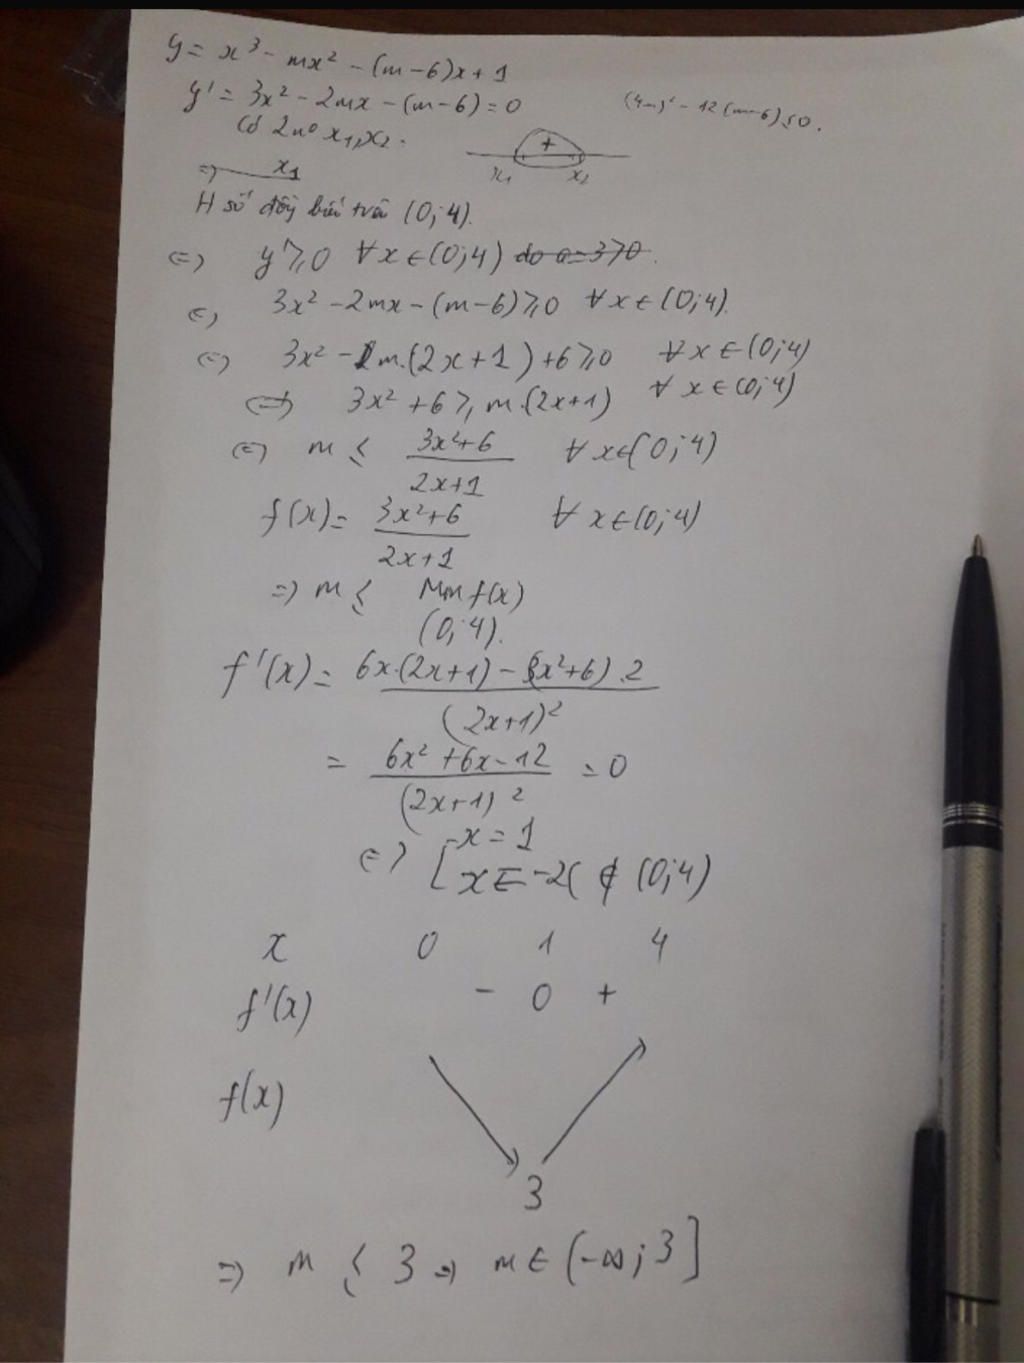 y = x³ - mx² - (m-6)x + 1
y' = 3x² - 2mx - (m-6) = 0
Có 2 n⁰ x₁, x₂.
+
x₁ x₂
=> x₁
H số đồng biến trên (0; 4).
<=> y' ≥ 0 ∀x ∈ (0; 4) do a = 3 > 0.
<=> 3x² - 2mx - (m-6) ≥ 0 ∀x ∈ (0; 4).
<=> 3x² - m.(2x+1) + 6 ≥ 0 ∀x ∈ (0; 4)
<=> 3x² + 6 ≥ m.(2x+1) ∀x ∈ (0; 4)
<=> m ≤ (3x²+6)/(2x+1) ∀x ∈ (0; 4)
f(x) = (3x²+6)/(2x+1) ∀x ∈ (0; 4)
=> m ≤ Min f(x)
(0; 4).
f'(x) = (6x.(2x+1) - (3x²+6).2)/(2x+1)²
= (6x² + 6x - 12)/(2x+1)² = 0
<=> [ x = 1
x = -2 ( ∉ (0; 4)
x 0 1 4
f'(x) - 0 +
f(x)
3
=> m ≤ 3 => m ∈ (-∞; 3]